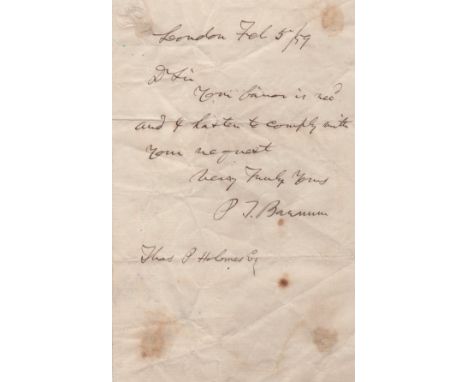 London Feb 5/59
Dr Sir
Your favor is recd
and I hasten to comply with
your request
Very Truly Yours
P T Barnum
Thos P Holmes Esq